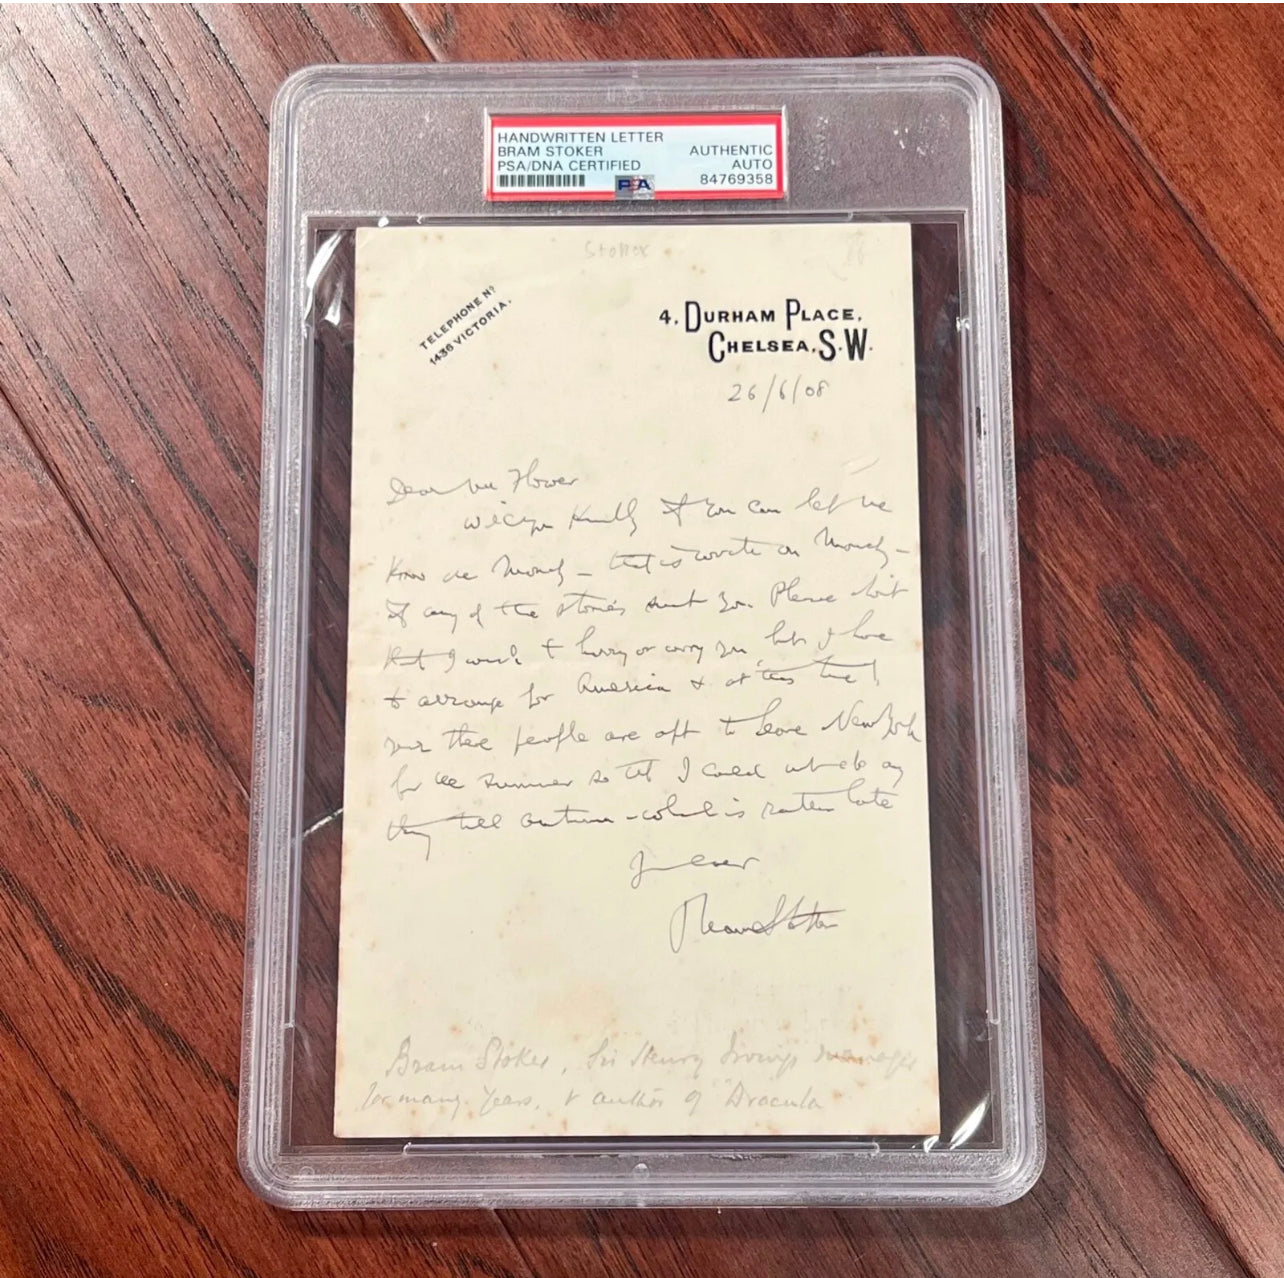 HANDWRITTEN LETTER
BRAM STOKER
PSA/DNA CERTIFIED
AUTHENTIC
AUTO
84769358
PSA
Stoker
TELEPHONE Nº
1436 VICTORIA.
4, DURHAM PLACE,
CHELSEA, S.W.
26/6/08
Dear Mr Flower
Will you kindly if you can let me
know on Monday – that is write on Monday –
if any of the stories suit you. Please don't
that I want to hurry or worry you, but I have
to arrange for America & at this time
over there people are apt to leave New York
for the summer so that I could not do any
thing till autumn – which is rather late
Yours ever
Bram Stoker
Bram Stoker, Sir Henry Irving's manager
for many years, & author of "Dracula